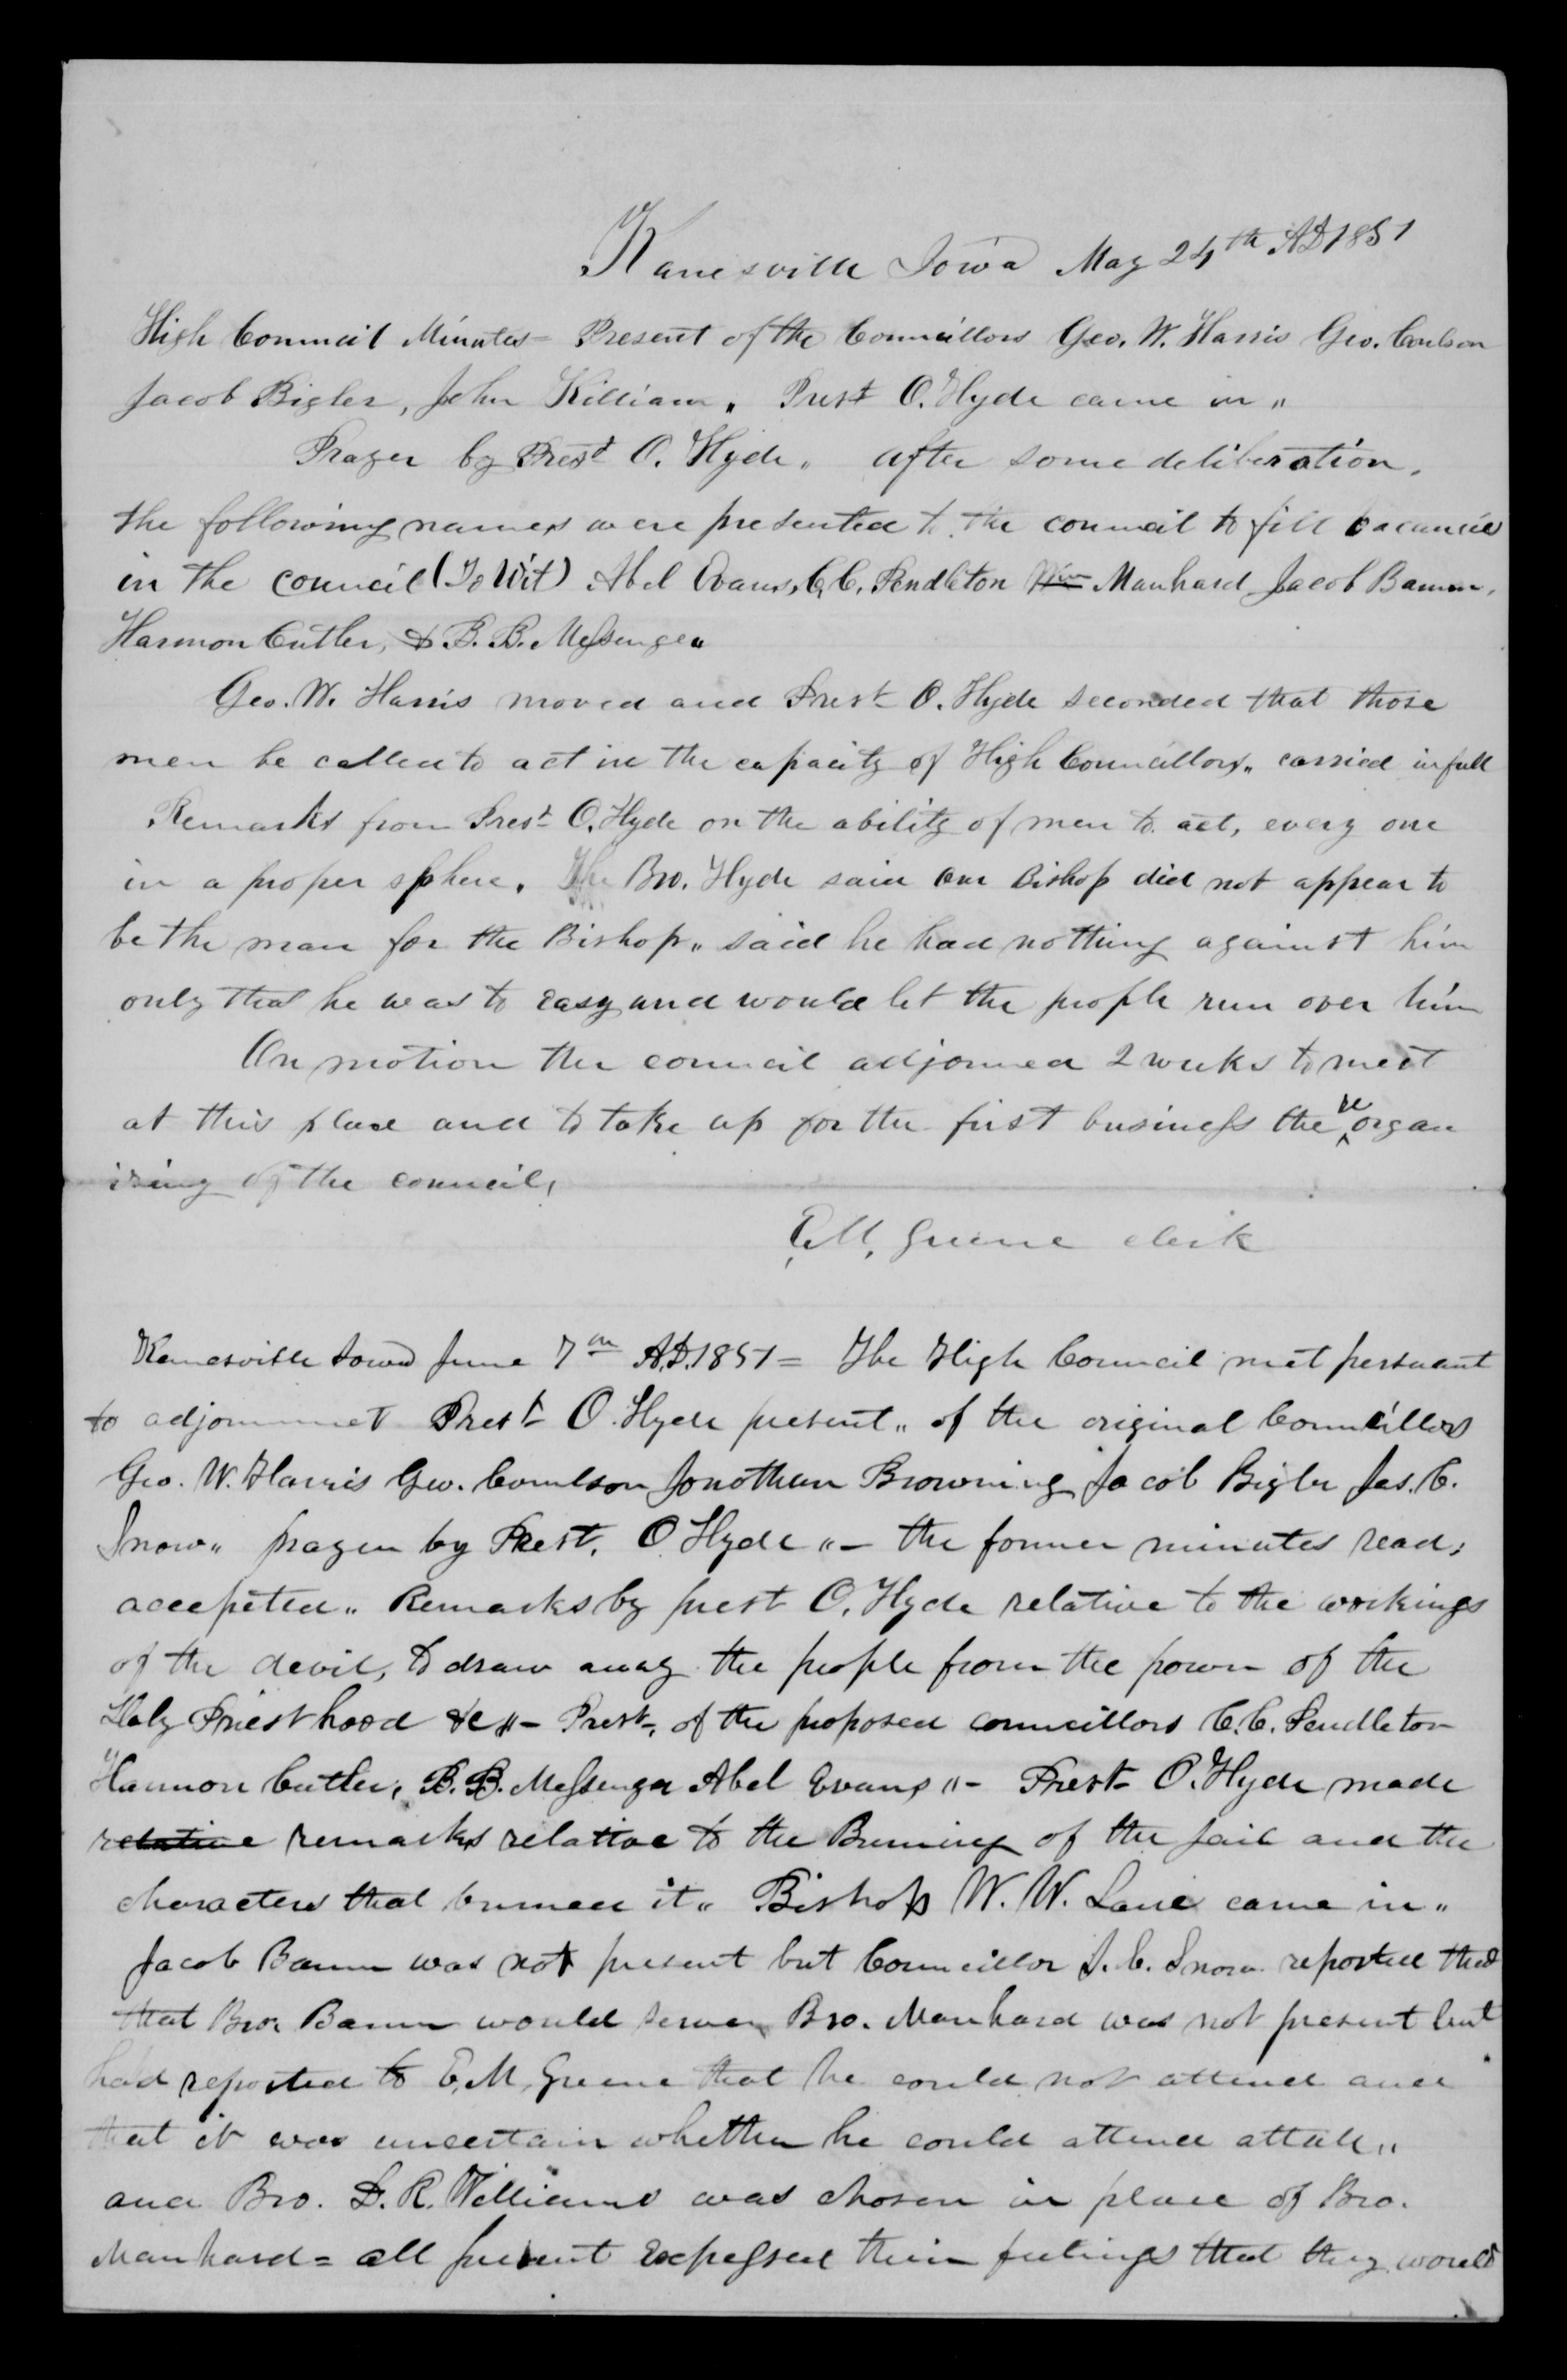 Kanesville Iowa May 24th AD 1851
High Council Minutes = Present of the Councillors Geo. W. Harris Geo. Coulson
Jacob Bigler, John Killian „ Prest O. Hyde came in „
Prayer by Prest O. Hyde „ after some deliberation,
the following names were presented to the council to fill vacancies
in the council (To Wit) Abel Evans, C. C. Pendleton Wm Manhard Jacob Baum,
Harmon Cutler, & B. B. Messenger
Geo. W. Harris moved and Prest O. Hyde seconded that those
men be called to act in the capacity of High Councillors „ carried in full
Remarks from Prest O. Hyde on the ability of men to act, every one
in a proper sphere. The Bro. Hyde said our Bishop did not appear to
be the man for the Bishop „ said he had nothing against him
only that he was to easy and would let the people run over him
On motion the council adjorned 2 weeks to meet
at this place and to take up for the first business the re organ
ising of the council,
E. M. Greene clerk
Kanesville Iowa June 7th A.D. 1851 = The High Council met persuant
to adjornmet Prest O. Hyde present „ of the original Councillors
Geo. W. Harris Geo. Coulson Jonathan Browning Jacob Bigler Jas. C.
Snow „ prayer by Prest. O Hyde „ – the former minutes read,
accepeted „ Remarks by prest O. Hyde relative to the workings
of the devil, to draw away the people from the power of the
Holy Priesthood &c „ – Prest, of the proposed councillors C. C. Pendleton
Harmon Cutler, B. B. Messenger Abel Evans „ – Prest O. Hyde made
relative remarks relative to the Burning of the jail and the
characters that burned it „ Bishop W. W. Lane came in „
Jacob Baum was not present but Councillor J. C. Snow reported that
that Bro. Baum would serve Bro. Manhard was not present but
had reported to E. M. Greene that he could not attend and
that it was uncertain whether he could attend attall „
and Bro. D. R. Williams was chosen in place of Bro.
Manhard = all present expressed their feelings that they would